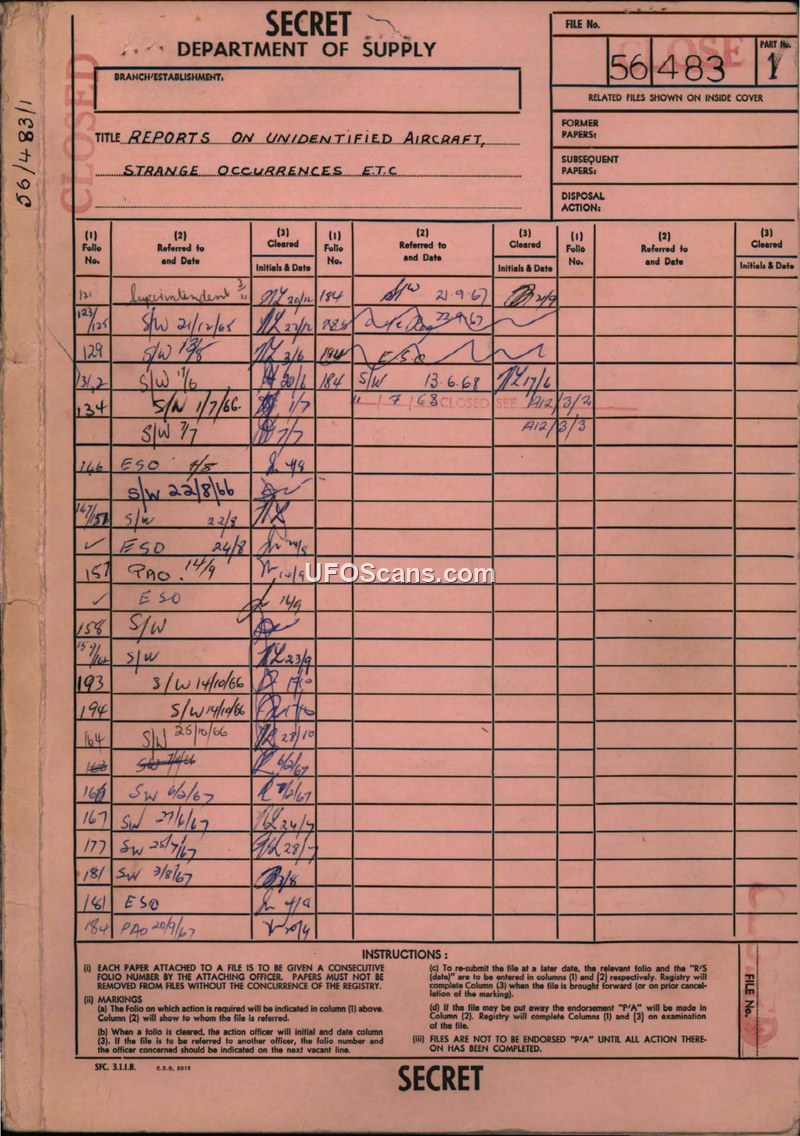 SECRET
DEPARTMENT OF SUPPLY
BRANCH/ESTABLISHMENT:
TITLE REPORTS ON UNIDENTIFIED AIRCRAFT,
STRANGE OCCURRENCES ETC
FILE No.
56 483
PART No.
1
RELATED FILES SHOWN ON INSIDE COVER
FORMER PAPERS:
SUBSEQUENT PAPERS:
DISPOSAL ACTION:
CLOSED
CLOSED
56/483/1
(1) Folio No. (2) Referred to and Date (3) Cleared Initials & Date (1) Folio No. (2) Referred to and Date (3) Cleared Initials & Date (1) Folio No. (2) Referred to and Date (3) Cleared Initials & Date
121 Superintendent 20/12 184 S/W 21.9.67 21/9
123/125 S/W 21/12/65 22/12
129 S/W 3/6 184 ESO
131,2 S/W 17/6 20/6 184 S/W 13.6.68 17/6
134 S/W 1/7/66 1/7 7 68 CLOSED SEE A12/3/2
S/W 7/7 7/7 A12/3/3
146 ESO 4/8
S/W 22/8/66
S/W 22/8
✓ ESO 24/8
157 PAO. 14/9
✓ ESO 16/9
158 S/W
S/W 23/9
193 S/W 14/10/66
194 S/W 14/10/66
164 S/W 25/10/66 28/10
6/2/67
SW 6/2/67 7/2/67
167 SW 27/6/67 24/7
177 SW 25/7/67 28/7
181 SW 3/8/67 3/8
181 ESO 4/9
184 PAO 20/9/67 20/9
UFOScans.com
INSTRUCTIONS:
(i) EACH PAPER ATTACHED TO A FILE IS TO BE GIVEN A CONSECUTIVE
FOLIO NUMBER BY THE ATTACHING OFFICER. PAPERS MUST NOT BE
REMOVED FROM FILES WITHOUT THE CONCURRENCE OF THE REGISTRY.
(ii) MARKINGS
(a) The Folio on which action is required will be indicated in column (1) above.
Column (2) will show to whom the file is referred.
(b) When a folio is cleared, the action officer will initial and date column
(3). If the file is to be referred to another officer, the folio number and
the officer concerned should be indicated on the next vacant line.
(c) To re-submit the file at a later date, the relevant folio and the "R/S
(date)" are to be entered in columns (1) and (2) respectively. Registry will
complete Column (3) when the file is brought forward (or on prior cancel-
lation of the marking).
(d) If the file may be put away the endorsement "P/A" will be made in
Column (2). Registry will complete Columns (1) and (3) on examination
of the file.
(iii) FILES ARE NOT TO BE ENDORSED "P/A" UNTIL ALL ACTION THERE-
ON HAS BEEN COMPLETED.
FILE No.
SFC. 3.1.1.B.
SECRET